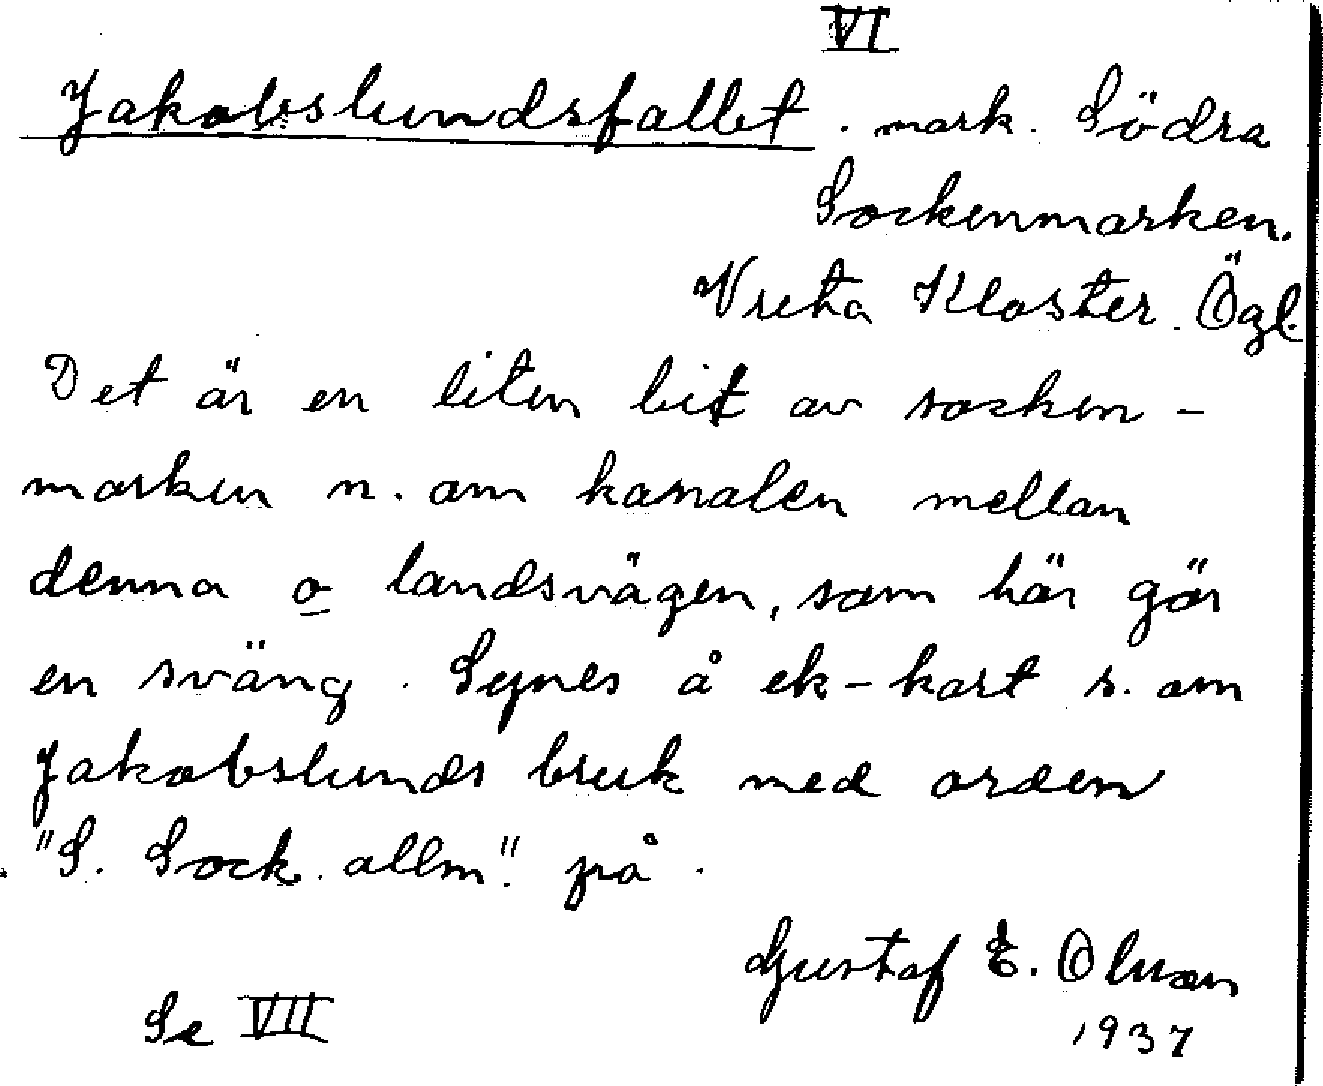 VI
Jakobslundsfallet . mark. Södra
Sockenmarken.
Vreta Kloster. Ögl.
Det är en liten bit av socken-
marken n. om kanalen mellan
denna o landsvägen, som här gör
en sväng. Synes å ek-kart s. om
Jakobslunds bruk med orden
"S. Sock. allm." på.
Gustaf E. Olwon
1937
Se VII